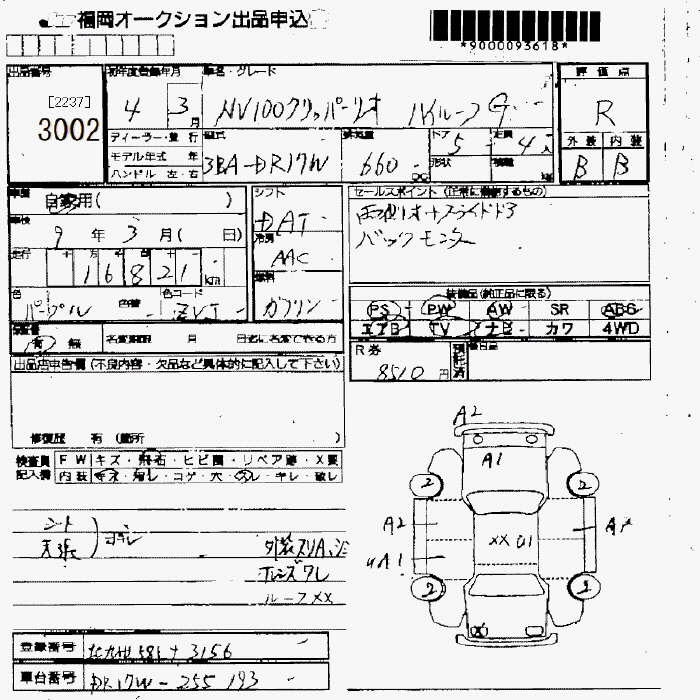 福岡オークション出品申込
*9000093618*
出品番号
[2237]
3002
初年度登録年月
4 3月
車名・グレード
NV100クリッパーリオ ハイルーフ G
評価点
R
外装 内装
B B
ディーラー・並行
モデル年式 年
ハンドル 左・右
型式
3BA-DR17W
排気量
660
ドア 5
形状
定員 4人
積載
車歴
自家用( )
車検
9年3月( 日)
走行
16821km
色
パープル
色替
色コード
ZVJ
シフト
DAT
冷房
AAC
燃料
ガソリン
セールスポイント(正常に機能するもの)
両側オートスライドドア
バックモニター
装備品(純正品に限る)
PS PW AW SR ABS
エアB TV ナビ カワ 4WD
有 無
名変期限 月 日迄に名変できる方
R券
8510円
預託済
出品店申告欄(不良内容・欠品など具体的に記入して下さい)
修復歴 有(箇所 )
検査員記入欄
FW キズ・飛石・ヒビ・リペア跡・X要
内装 コゲ・穴・スレ・キレ・破レ
シート
天張
ヨゴレ
外装スリA、
Fレンズワレ
ルーフXX
A2
A1
2 2
A2
XX U1
2 2
X
登録番号
3156
車台番号
DR17W-255193